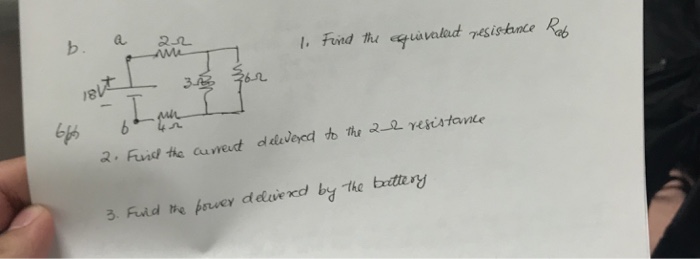 b. a 2Ω 1. Find the equivalent resistance Rab
18V + 3Ω 6Ω
-
b 4Ω
2. Find the current delivered to the 2Ω resistance
3. Find the power delivered by the battery